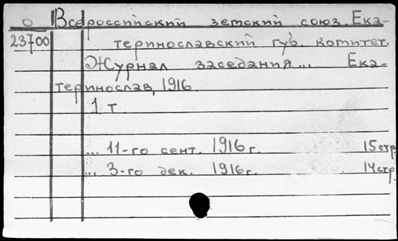 О Всероссийский земский союз. Ека-
23700 теринославский губ. комитет.
Журнал заседания... Ека-
теринослав, 1916.
1 т.
... 11-го сент. 1916 г. 15 стр.
... 3-го дек. 1916 г. 14 стр.